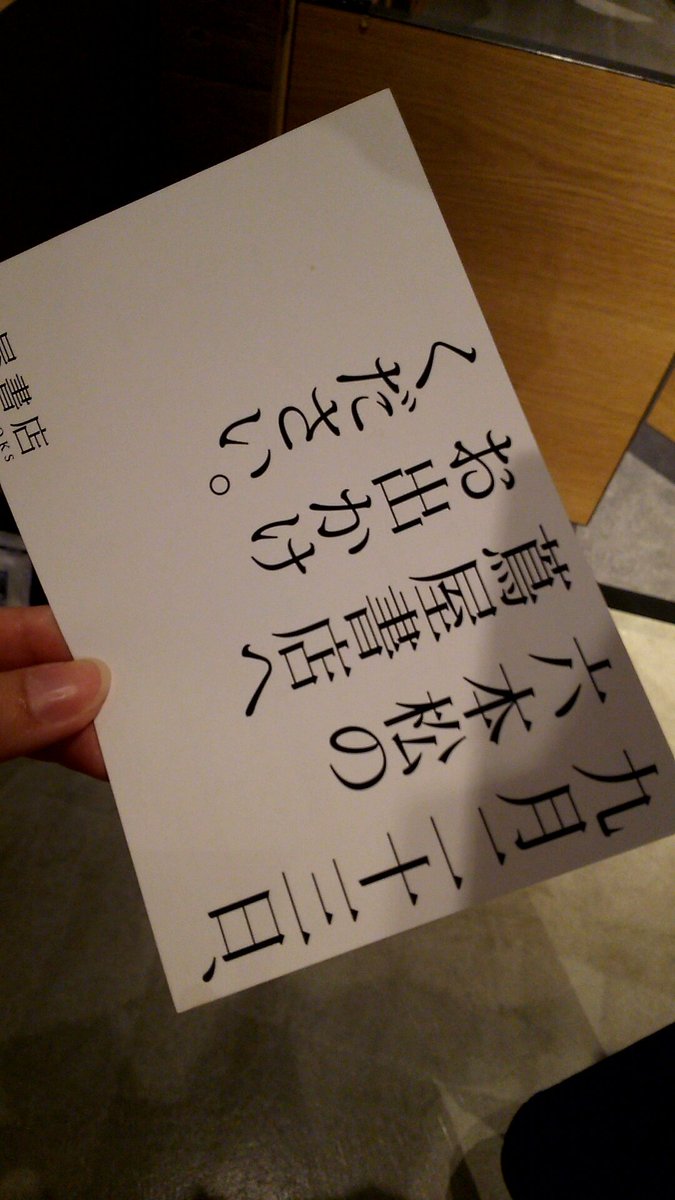 九月二十三日、
六本松の
蔦屋書店へ
お出かけ
ください。
書店